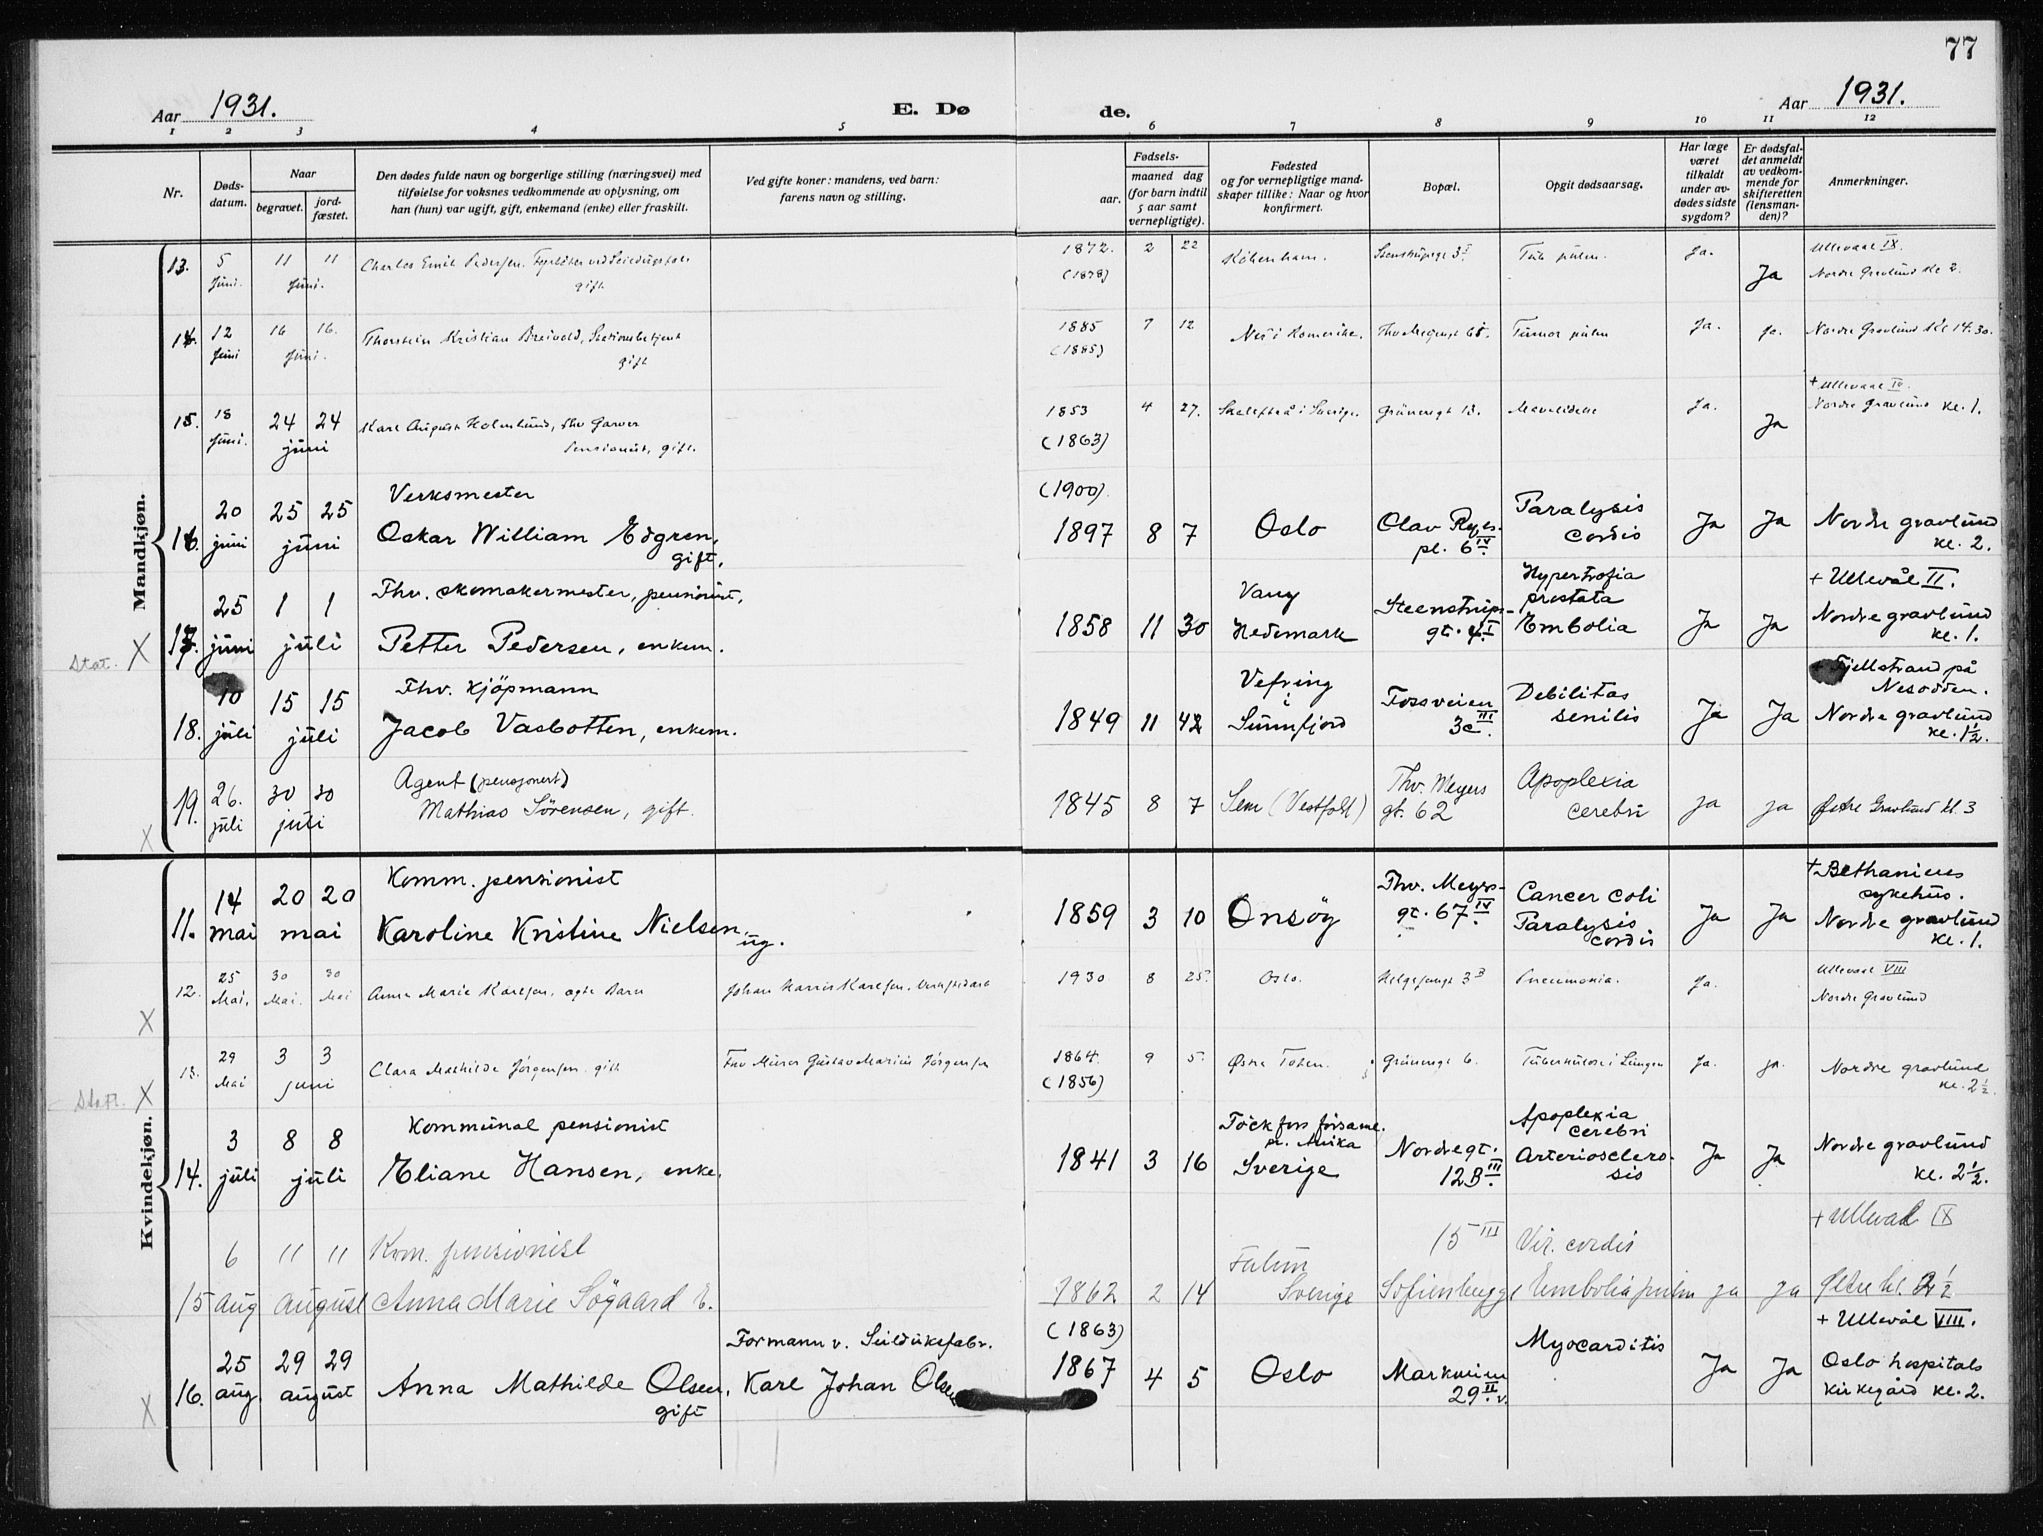 77
Aar 1931.
E. Døde.
Aar 1931.
1 2 3 4 5 6 7 8 9 10 11 12
Nr.
Døds-
datum.
Naar
begravet.
jord-
fæstet.
Den dødes fulde navn og borgerlige stilling (næringsvei) med
tilføielse for voksnes vedkommende av oplysning, om
han (hun) var ugift, gift, enkemand (enke) eller fraskilt.
Ved gifte koner: mandens, ved barn:
farens navn og stilling.
Fødsels-
aar.
maaned dag
(for barn indtil
5 aar samt
vernepligtige).
Fødested
og for vernepligtige mand-
skaper tillike: Naar og hvor
konfirmert.
Bopæl.
Opgit dødsaarsag.
Har læge
været
tilkaldt
under av-
dødes sidste
sygdom?
Er dødsfal-
det anmeldt
av vedkom-
mende for
skifteretten
(lensman-
den)?
Anmerkninger.
Mandkjøn.
13. 5 Juni. 11 11 Juni. Charles Emil Pedersen. gift 1872. (1878) 2 22 København. Tub pulm. Ja. Ja Ullevaal IX.
Nordre Gravlund kl 2.
14. 12 Juni 16 16. Juni. Thorstein Kristian Breivold, Stationsbetjent
gift 1885 (1885) 7 12 Nes i Romerike. Thv Meyersgt 68. Tumor pulm Ja. ja. Nordre Gravlund Kl 14.30.
15. 18 Juni. 24 24 juni Karl August Holmlund, fhv Garver
Pensionist, gift. 1853 (1863) 4 27. Skellefteå i Sverige. Grünersgt 13. Mavelidelse Ja. Ja + Ullevaal IV.
Nordre Gravlund kl. 1.
16. 20 juni 25 25 juni Verksmester
Oskar William Edgren,
gift. (1900) 1897 8 7 Oslo Olav Ryes-
pl. 6 IV. Paralysis
cordis Ja Ja Nordre gravlund
kl. 2.
Stat. X 17. 25 juni 1 1 juli Fhv. skomakermester, pensionist,
Petter Pedersen, enkem. 1858 11 30 Vang
Hedemark Steenstrups-
gt. 4 I. Hypertrofia
prostata
Embolia Ja Ja + Ullevål II.
Nordre gravlund
kl. 1.
18. 10 juli 15 15 juli Fhv. kjöpmann
Jacob Vasbotten, enkem. 1849 11 42 Vefring
i
Sunnfjord Fossveien
3c III. Debilitas
senilis Ja Ja Fjellstrand på
Nesodden.
Nordre gravlund
kl. 1½.
X 19. 26. juli 30 30 juli Agent (pensjonert)
Mathias Sörensen, gift. 1845 8 7 Sem (Vestfold) Thv. Meyers
gt. 62 Apoplexia
cerebri ja ja Østre Gravlund kl. 3
Kvindekjøn.
11. 14 mai 20 20 mai Komm. pensionist
Karoline Kristine Nielsen,
ug. 1859 3 10 Onsöy Thv. Meyers-
gt. 67 IV. Cancer coli
Paralysis
cordis Ja Ja + Bethanien
sykehus.
Nordre gravlund
kl. 1.
X 12. 25 Mai. 30 30 Mai. Mai Anna Marie Karlsen, egte Barn Johan Karlsen. 1930 8 25. Oslo. Helgesensgt 3 B Pneumonia. Ja. Ullevaal VIII
Nordre Gravlund
Statl. X 13. 29 Mai 3 3 juni Clara Mathilde Jörgensen gift Fhv Murer Gustav Marius Jörgensen 1864. (1856) 9 5. Østre Toten. Grünersgt 6. Tuberkulose i Lungen Ja. ja. Nordre gravlund
kl. 2½
14. 3 juli 8 8 juli Kommunal pensionist
Eliane Hansen, enke. 1841 3 16 Töckfors församl.
pr. Arvika
Sverige Nordregt.
12B III. Apoplexia
cerebri
Arteriosclero-
sis Ja Ja Nordre gravlund
kl. 2½.
15 6 aug 11 11 august Kom. pensionist
Anna Marie Sögaard E. 1862 2 14 Falun
Sverige 15 III
Sofienberggt Vit. cordis
Embolia pulm ja ja + Ullevål IX
Østre kl. 2½
X 16. 25 aug. 29 29 august Anna Mathilde Olsen,
gift Formann v. Seilduksfabr.
Karl Johan Olsen (1863) 1867 4 5 Oslo Markveien
29 II. v. Myocarditis Ja Ja + Ullevål VIII.
Oslo hospitals
kirkegård kl. 2.